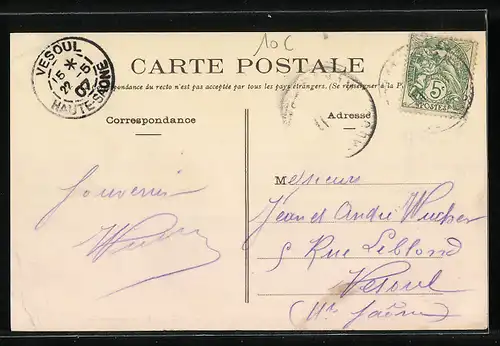 10c
CARTE POSTALE
VESOUL
15 * 5
22 07
HAUTE-SAÔNE
pondance du recto n'est pas acceptée par tous les pays étrangers. (Se renseigner à la P
5c
POSTES
Correspondance
Adresse
Messieurs
Souvenir
Jean et André Wucher
5 Rue Leblond
Vesoul
(Hte Saône)